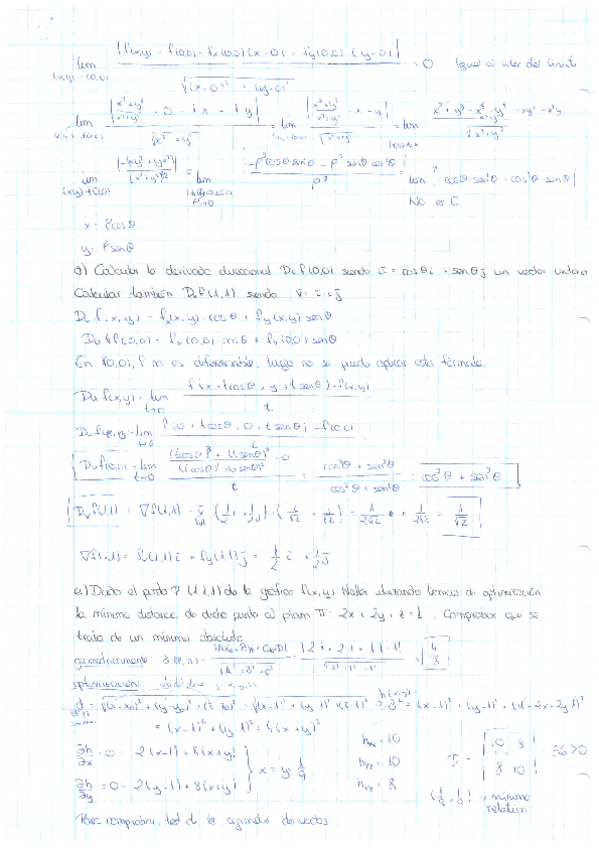 lim |f(x,y) - f(0,0) - fx(0,0)(x-0) - fy(0,0)(y-0)| / √((x-0)² + (y-0)²) = 0 Igual al valor del límite
(x,y)→(0,0)
lim |(x³+y³)/(x²+y²) - 0 - 1x - 1y| / √(x²+y²) = lim |(x³+y³)/(x²+y²) - x - y| / √(x²+y²) = lim
lim |-(xy²+yx²)| / (x²+y²)^(3/2) = lim -ρ³cosθ sen²θ - ρ³ senθ cos²θ / ρ³ = lim |-cosθ·sen²θ - cos²θ·senθ|
(x,y)→(0,0) ρ→0 No es 0
x = ρcosθ
y = ρsenθ
d) Calcular la derivada direccional Du f(0,0) siendo ū = cosθi + senθj un vector unitario
Calcular también Dv f(1,1) siendo v̄ = i + j
Du f(x,y) = fx(x,y)·cosθ + fy(x,y) senθ
Du f(0,0) = fx(0,0)·cosθ + fy(0,0) senθ
En (0,0), f no es diferenciable, luego no se puede aplicar esta fórmula
Du f(x,y) = lim f(x+tcosθ, y+tsenθ) - f(x,y) / t
t→0
Du f(0,0) = lim f(0+tcosθ, 0+tsenθ) - f(0,0) / t
t→0
Du f(0,0) = lim ((tcosθ)³ + (tsenθ)³) / ((tcosθ)² + (tsenθ)²) - 0 / t = (cos³θ + sen³θ) / (cos²θ + sen²θ) = cos³θ + sen³θ
t→0
Dv f(1,1) = ∇f(1,1) · v̄/|v̄| = (1/2 i + 1/2 j)·(1/√2 + 1/√2) = 1/2√2 + 1/2√2 = 1/√2
∇f(1,1) = fx(1,1)i + fy(1,1)j = 1/2 i + 1/2 j
e) Dado el punto P(1,1,1) de la gráfica f(x,y) Hallar utilizando técnicas de optimización
la mínima distancia de dicho punto al plano π: 2x + 2y + z = 1. Comprobar que se
trata de un mínimo absoluto
geométricamente d(P,π) = |Ax₀ + By₀ + Cz₀ + D| / √(A²+B²+C²) = |2·1 + 2·1 + 1·1 - 1| / √(2²+2²+1²) = 4/3
optimización
d = √((x-x₀)² + (y-y₀)² + (z-z₀)²) = √((x-1)² + (y-1)² + (z-1)²) → d² = (x-1)² + (y-1)² + (1-2x-2y-1)²
h(x,y)
= (x-1)² + (y-1)² + 4(x+y)²
∂h/∂x = 0 = 2(x-1) + 8(x+y)
∂h/∂y = 0 = 2(y-1) + 8(x+y)
x = y = 1/9
hxx = 10
hyy = 10
hxy = 8
D = |10 8 8 10| = 36 > 0
(1/9, 1/9) → mínimo relativo
Para comprobarlo, test de las segundas derivadas